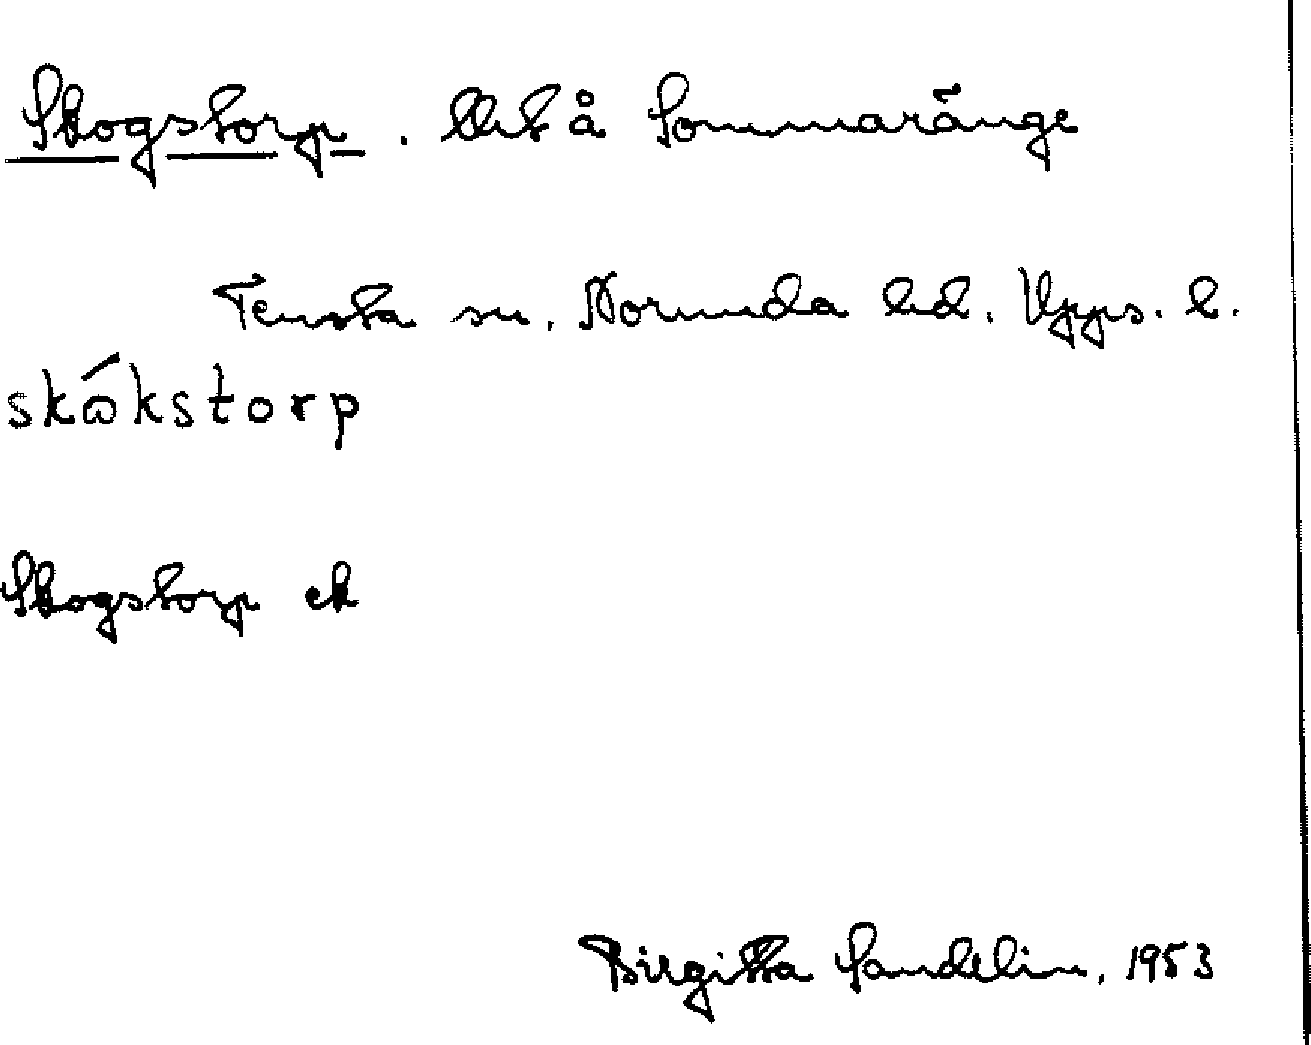 Skogstorp. lht å Sommaränge
Tensta sn. Norunda hd. Upps. l.
skǻkstorp
Skogstorp ek
Birgitta Sandelin, 1953